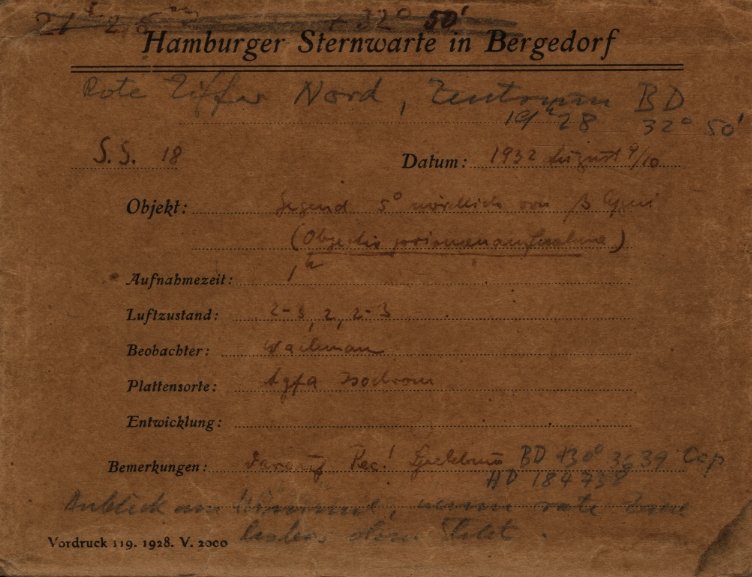 + 32° 50'
Hamburger Sternwarte in Bergedorf
Rote Ziffer Nord, Zentrum BD
19h 28 32° 50'
S.S. 18 Datum: 1932 August 9/10
Objekt: Gegend 5° nördlich von β Cygni
(Objectivprismenaufnahme)
Aufnahmezeit: 1h
Luftzustand: 2-3, 2, 2-3
Beobachter: Wachmann
Plattensorte: Agfa Isochrom
Entwicklung:
Bemerkungen: BD +30° 3639
HD 184738
Anblick am Himmel, wenn rote
links
Vordruck 119. 1928. V. 2000